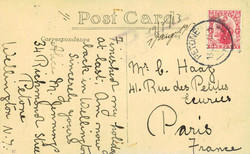 Post Card
Correspondence
PETONE
Finished my holiday
at last. And now
back in Wellington
Sincerely yours
M.
34 Richmond Street
Petone
Wellington N.Z.
Mr. C. Haas
41 Rue des Petites
Écuries
Paris
France